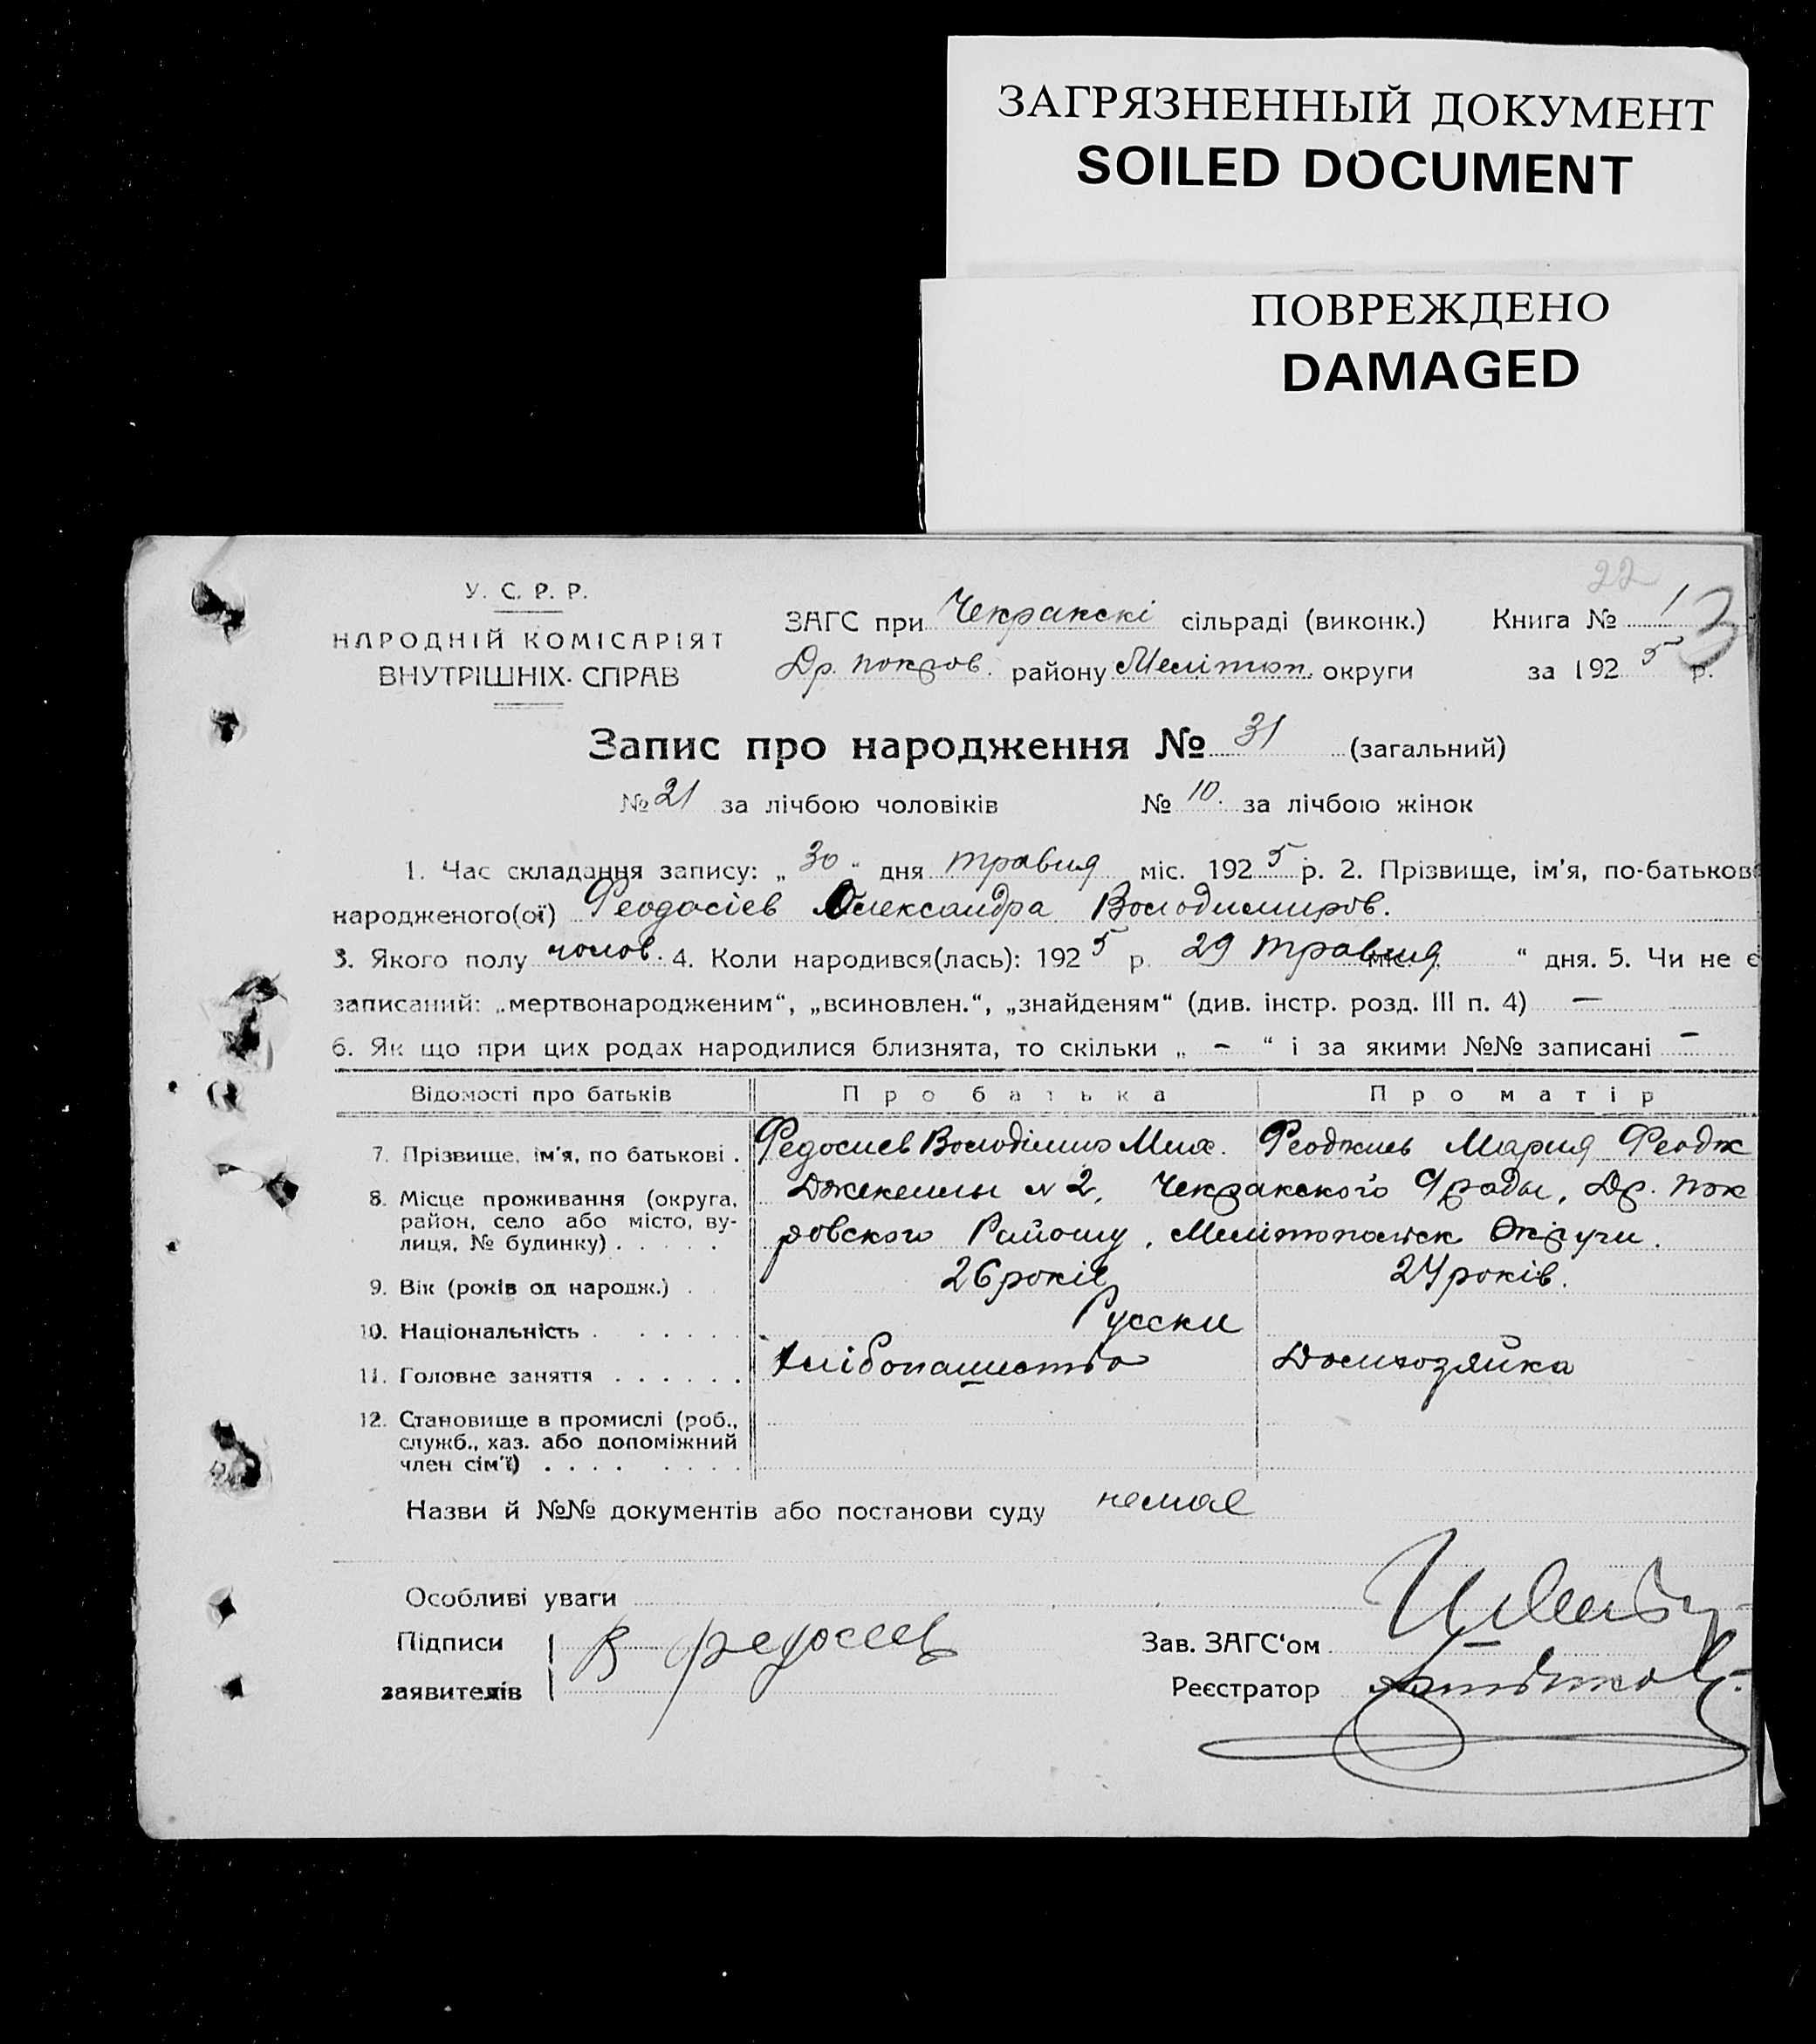 ЗАГРЯЗНЕННЫЙ ДОКУМЕНТ
SOILED DOCUMENT
ПОВРЕЖДЕНО
DAMAGED
22
У. С. Р. Р.
НАРОДНІЙ КОМІСАРІЯТ
ВНУТРІШНІХ СПРАВ
ЗАГС при Чекракскі сільраді (виконк.) Книга № 1
3
Др. покров. району Мелітоп. округи за 1925 р.
Запис про народження № 31 (загальний)
№ 21 за лічбою чоловіків № 10. за лічбою жінок
1. Час складання запису: „30“ дня травня міс. 1925 р. 2. Прізвище, ім'я, по-батькові
народженого(ої) Феодосієв Олександра Володимиров.
3. Якого полу чолов. 4. Коли народився(лась): 1925 р. 29 травня міс. “ дня. 5. Чи не є
записаний: „мертвонародженим“, „всиновлен.“, „знайденям“ (див. інстр. розд. III п. 4) —
6. Як що при цих родах народилися близнята, то скільки „ – “ і за якими №№ записані –
Відомості про батьків Про батька Про матір
7. Прізвище, ім'я, по батькові . Федосиев Володімир Мих. Мария
8. Місце проживання (округа, район, село або місто, вулиця, № будинку) . . . . . №2, Чекракского Др. Пок
ровского Району, Округи.
9. Вік (років од народж.) . . 26 років 24 років.
10. Національність . . . . . . . Русски
11. Головне заняття . . . . . . Хлібопашество Домхозяйка
12. Становище в промислі (роб., служб., хаз. або допоміжний член сім'ї) . . . . . . . .
Назви й №№ документів або постанови суду немае
Особливі уваги
Підписи заявителів В Федосеев
Зав. ЗАГС'ом
Реєстратор